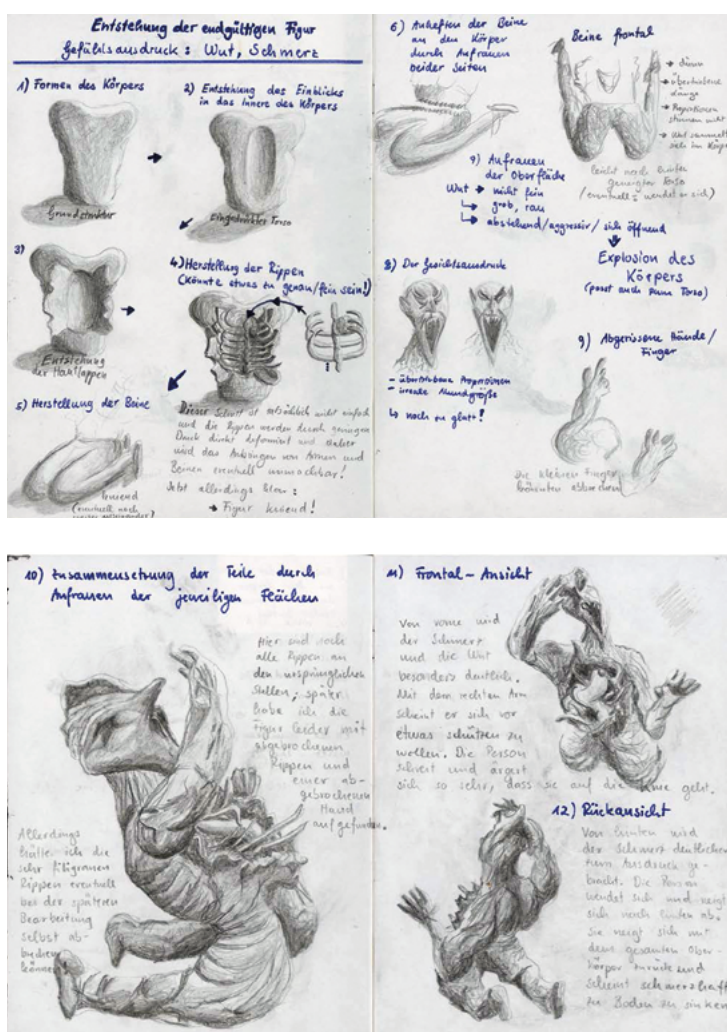 Entstehung der endgültigen Figur
Gefühlsausdruck: Wut, Schmerz
1) Formen des Körpers
Grundstruktur
2) Entstehung des Einblicks
in das Innere des Körpers
Eingedrückter Torso
3)
Entstehung
der Hautlappen
4) Herstellung der Rippen
(könnte etwas zu genau/fein sein!)
Dieser Schritt ist tatsächlich nicht einfach
und die Rippen werden durch geringen
Druck direkt deformiert und daher
wird das Anbringen von Armen und
Beinen eventuell unmachbar!
Jetzt allerdings klar:
→ Figur kniend!
5) Herstellung der Beine
kniend
(eventuell noch
6) Anheften der Beine
an den Körper
durch Aufrauen
beider Seiten
Beine frontal
→ dünn
→ übertriebene
Länge
→ Proportionen
stimmen nicht
→ Wut sammelt
sich im Körper
leicht nach hinten
geneigter Torso
(eventuell: wendet er sich)
7) Aufrauen
der Oberfläche
Wut → nicht fein
↳ grob, rau
↳ abstehend/aggressiv/ sich öffnend
Explosion des
Körpers
(passt auch zum Torso)
8) Der Gesichtsausdruck
- übertriebene Proportionen
- irreale Mundgröße
↳ noch zu glatt!
9) Abgerissene Hände/
Finger
Die kleinen Finger
könnten abbrechen
10) Zusammensetzung der Teile durch
Aufrauen der jeweiligen Flächen
Hier sind noch
alle Rippen an
den ursprünglichen
Stellen; später
habe ich die
Figur leider mit
abgebrochenen
Rippen und
einer ab-
gebrochenen
Hand
aufgefunden.
Allerdings
hätte ich die
sehr filigranen
Rippen eventuell
bei der späteren
Bearbeitung
selbst ab-
brechen
können!
11) Frontal-Ansicht
Von vorne wird
der Schmerz
und die Wut
besonders deutlich.
Mit dem rechten Arm
scheint er sich vor
etwas schützen zu
wollen. Die Person
schreit und ärgert
sich so sehr, dass sie auf die Knie geht.
12) Rückansicht
Von hinten wird
der Schmerz deutlicher
zum Ausdruck ge-
bracht. Die Person
wendet sich und neigt
sich nach hinten ab.
Sie neigt sich mit
dem gesamten Ober-
körper zurück und
scheint schmerzhaft
zu Boden zu sinken